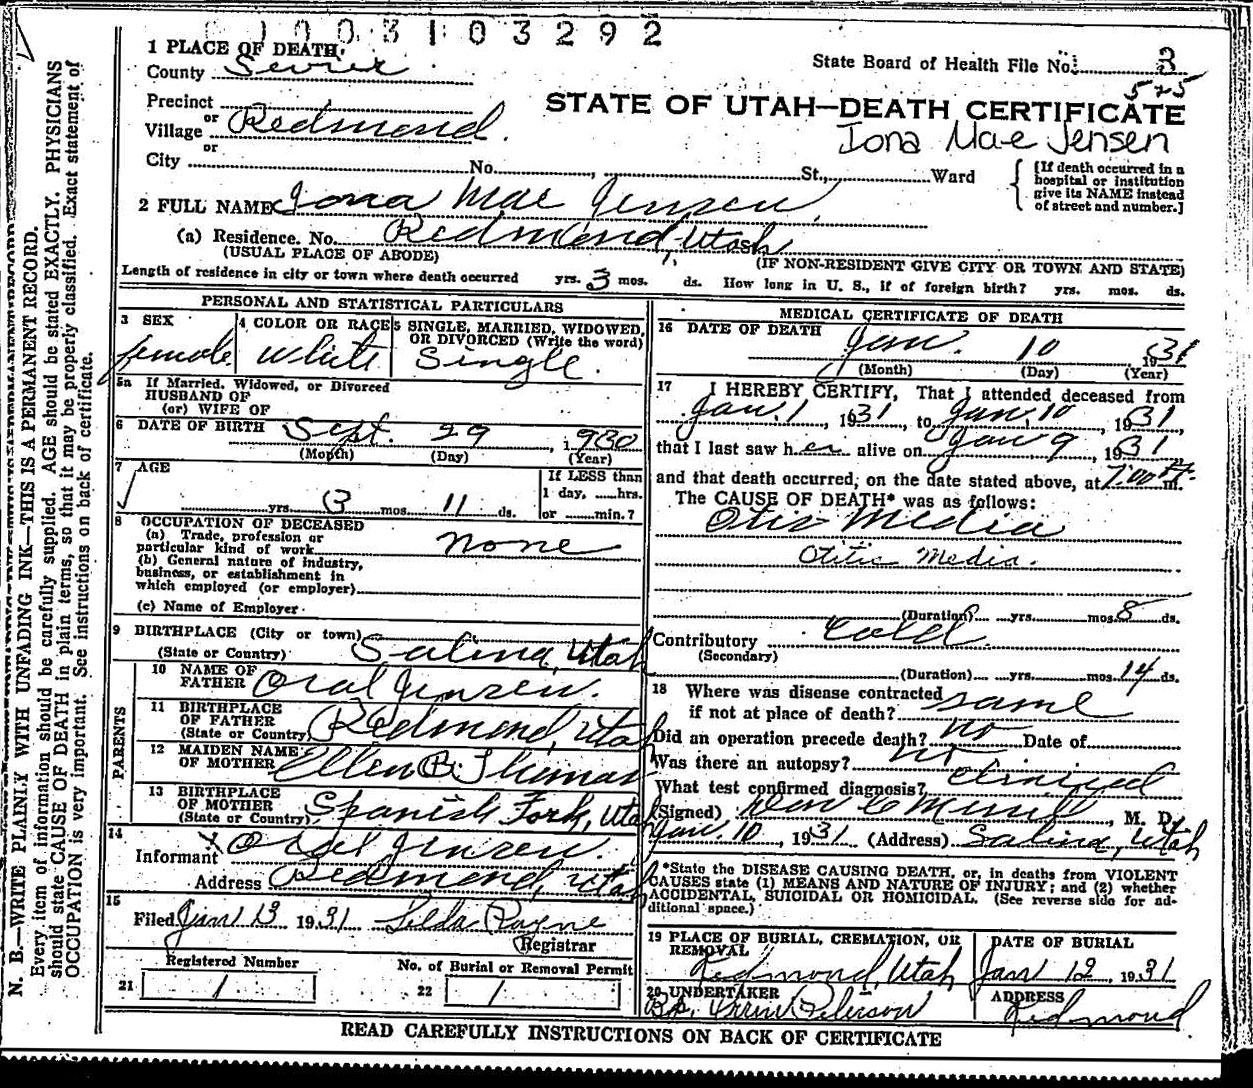 0 1 0 0 3 1 0 3 2 9 2
1 PLACE OF DEATH:
County Sevier
State Board of Health File No. 3
525
Precinct
or
Village Redmond.
or
STATE OF UTAH—DEATH CERTIFICATE
Iona Mae Jensen
City No. , St., Ward
[If death occurred in a hospital or institution give its NAME instead of street and number.]
2 FULL NAME Iona Mae Jensen,
(a) Residence. No. Redmond, Utah
(USUAL PLACE OF ABODE)
(IF NON-RESIDENT GIVE CITY OR TOWN AND STATE)
Length of residence in city or town where death occurred yrs. 3 mos. ds. How long in U. S., if of foreign birth? yrs. mos. ds.
PERSONAL AND STATISTICAL PARTICULARS
3 SEX
female
4 COLOR OR RACE
white
5 SINGLE, MARRIED, WIDOWED, OR DIVORCED (Write the word)
Single.
5a If Married, Widowed, or Divorced
HUSBAND OF
(or) WIFE OF
6 DATE OF BIRTH Sept. 29, 1930
(Month) (Day) (Year)
7 AGE
yrs. 3 mos. 11 ds.
If LESS than
1 day, ......hrs.
or .......min.?
8 OCCUPATION OF DECEASED
(a) Trade, profession or
particular kind of work none
(b) General nature of industry,
business, or establishment in
which employed (or employer)
(c) Name of Employer
9 BIRTHPLACE (City or town)
(State or Country) Salina, Utah
PARENTS
10 NAME OF
FATHER Oral Jensen.
11 BIRTHPLACE
OF FATHER
(State or Country) Redmond, Utah
12 MAIDEN NAME
OF MOTHER Ellen B. Thomas
13 BIRTHPLACE
OF MOTHER
(State or Country) Spanish Fork, Utah
14
Informant x Oral Jensen.
Address Redmond, Utah
15
Filed Jan 13 1931 Payne
Registrar
Registered Number
21 1
No. of Burial or Removal Permit
22 1
MEDICAL CERTIFICATE OF DEATH
16 DATE OF DEATH Jan. 10 1931
(Month) (Day) (Year)
17 I HEREBY CERTIFY, That I attended deceased from
Jan. 1, 1931, to Jan. 10, 1931
that I last saw her alive on Jan 9, 1931
and that death occurred, on the date stated above, at 7:00 m.
The CAUSE OF DEATH* was as follows:
Otis Media
Otitic Media.
(Duration) yrs. mos. 8 ds.
Contributory Cold
(Secondary)
(Duration) yrs. mos. 14 ds.
18 Where was disease contracted
if not at place of death? same
Did an operation precede death? no Date of
Was there an autopsy? no
What test confirmed diagnosis? clinical
(Signed) Merrill, M. D.
Jan. 10, 1931 (Address) Salina, Utah
*State the DISEASE CAUSING DEATH, or, in deaths from VIOLENT
CAUSES state (1) MEANS AND NATURE OF INJURY; and (2) whether
ACCIDENTAL, SUICIDAL OR HOMICIDAL. (See reverse side for ad-
ditional space.)
19 PLACE OF BURIAL, CREMATION, OR
REMOVAL
Redmond, Utah
DATE OF BURIAL
Jan 12, 1931
20 UNDERTAKER
Bp. Orrin Peterson
ADDRESS
Redmond
READ CAREFULLY INSTRUCTIONS ON BACK OF CERTIFICATE
N. B.—WRITE PLAINLY WITH UNFADING INK—THIS IS A PERMANENT RECORD.
Every item of information should be carefully supplied. AGE should be stated EXACTLY. PHYSICIANS
should state CAUSE OF DEATH in plain terms, so that it may be properly classified. Exact statement of
OCCUPATION is very important. See instructions on back of certificate.